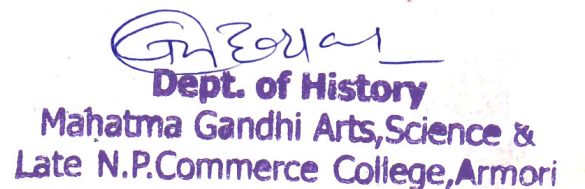 Dept. of History
Mahatma Gandhi Arts,Science &
Late N.P.Commerce College,Armori